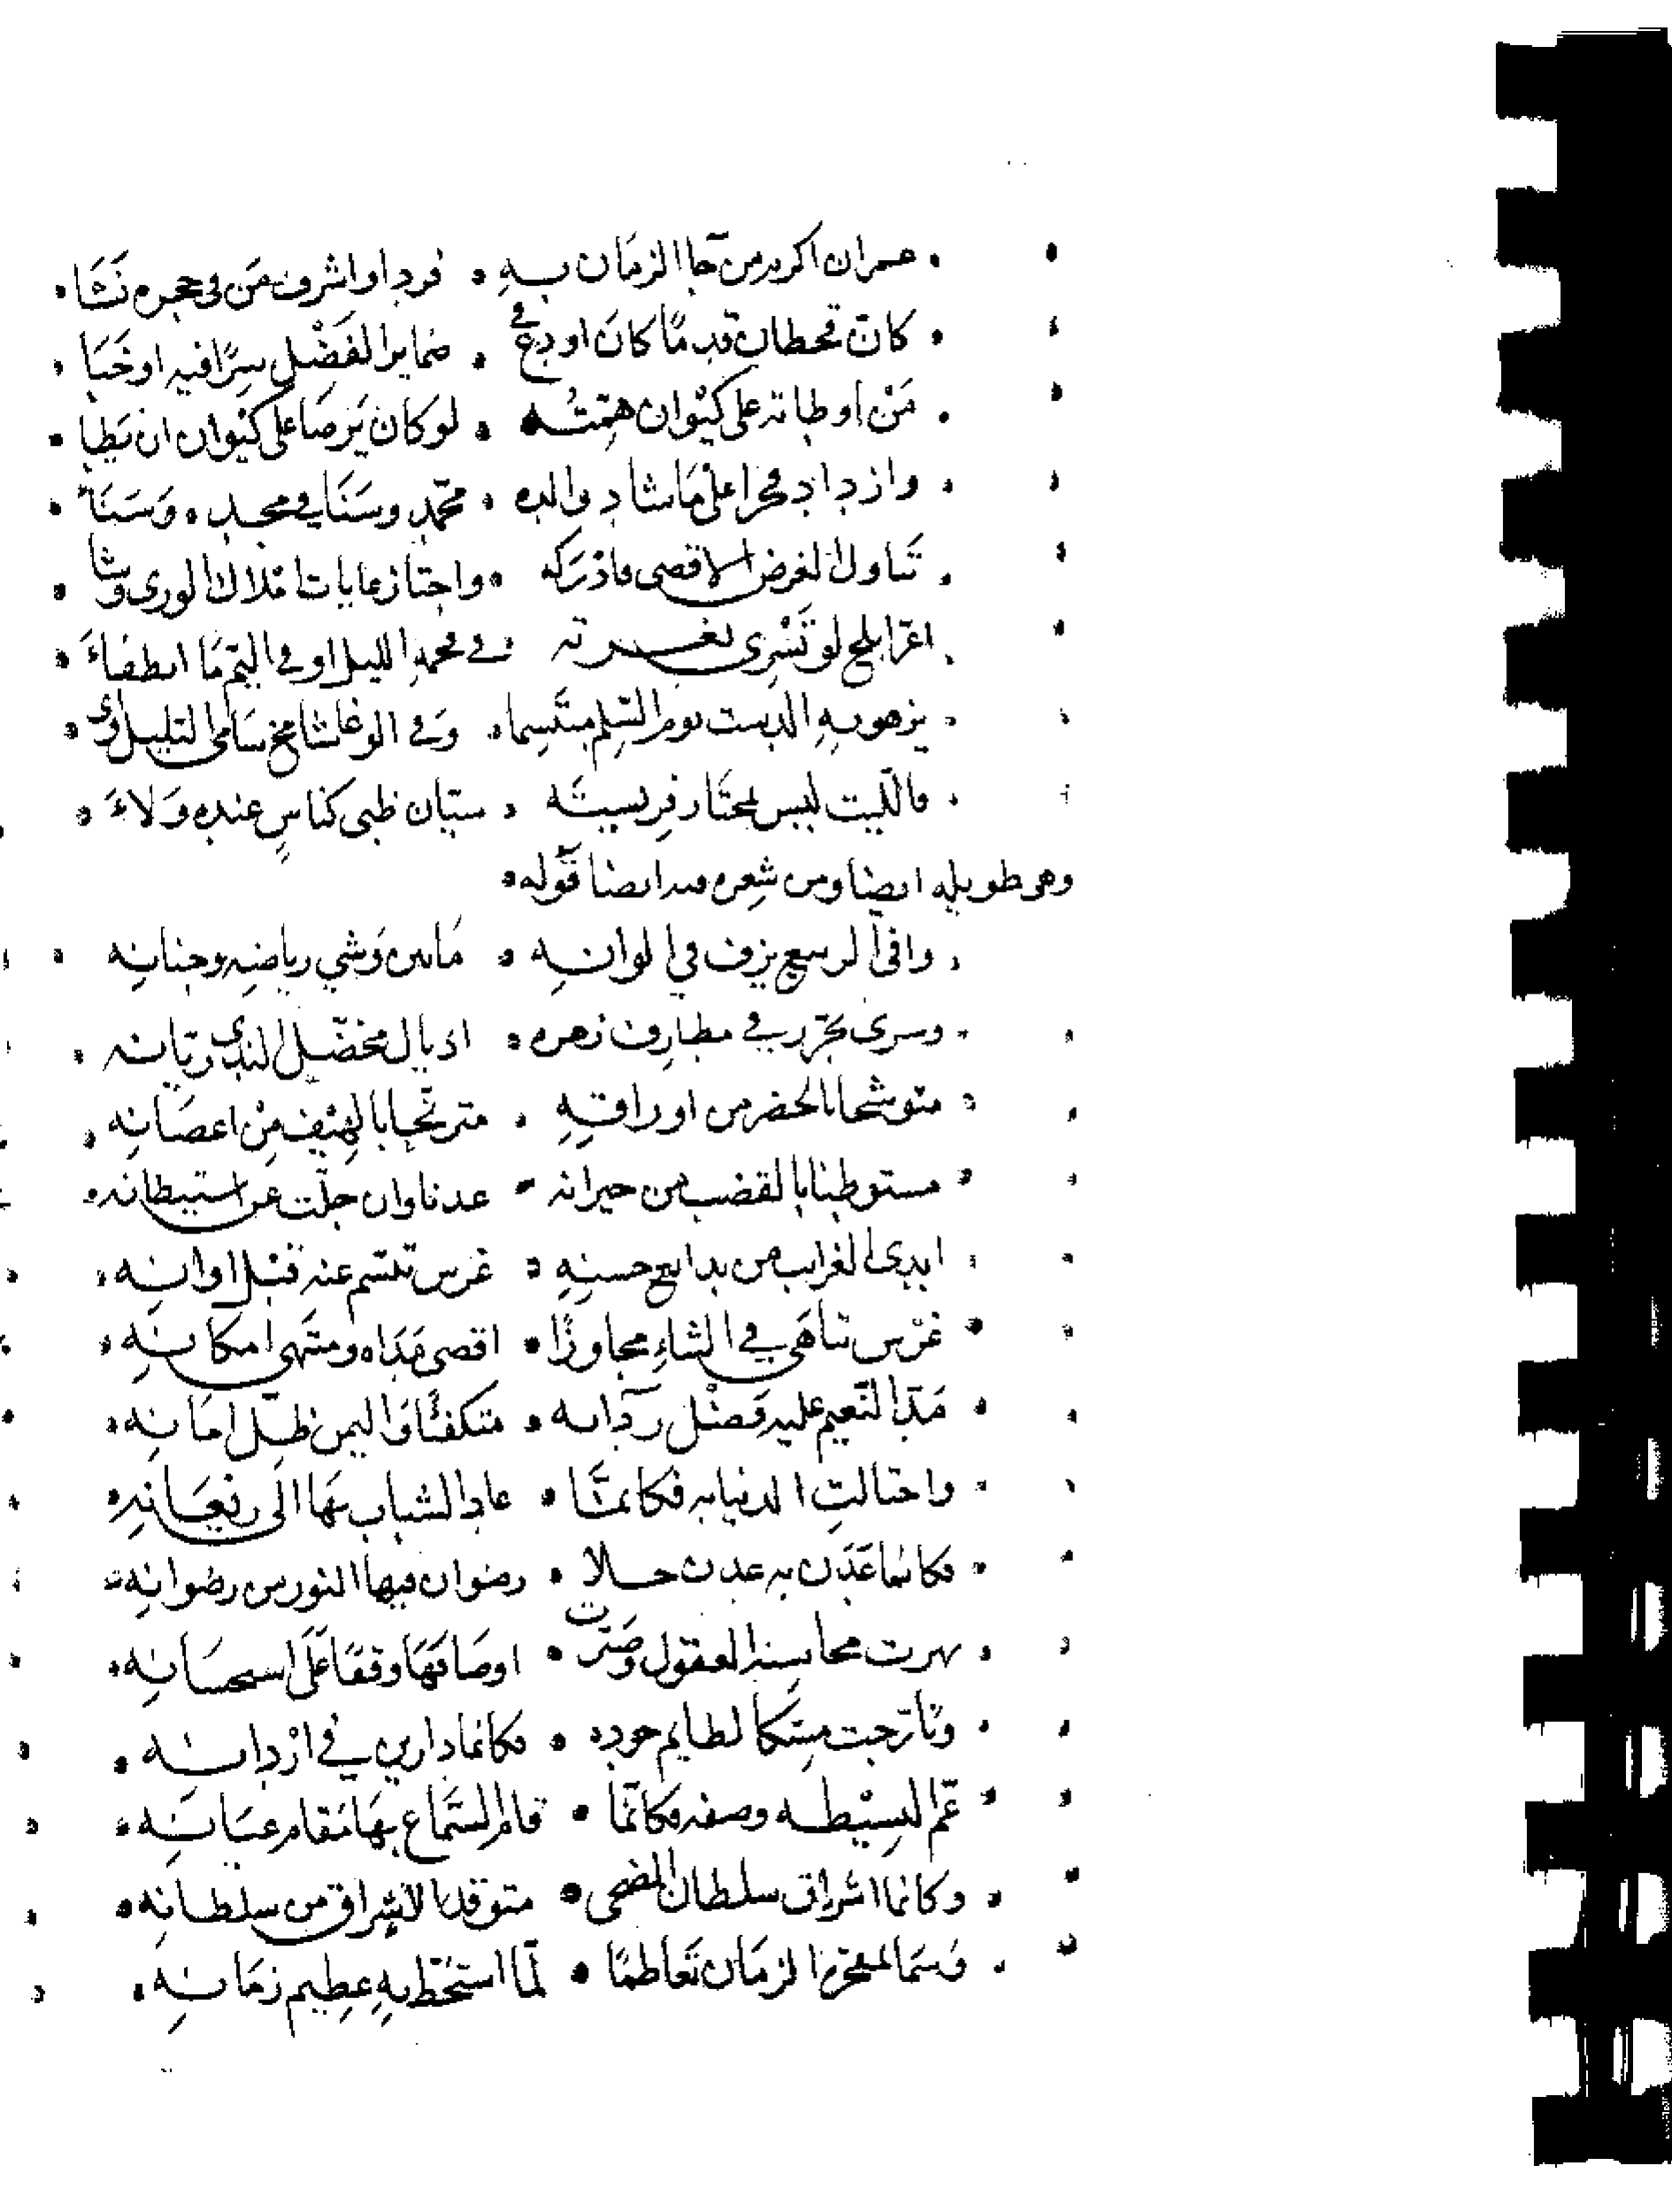 عمران اكرم من جا الزمان به • فردا واشرف من في حجره نشا
كانّ قحطان قدمًا كان اودع في • ضماير الفضل سرًّا فيه او خبا
من اوطاته على كيوان همته • لو كان يرضا على كيوان ان يطا
وازداد فخرا على ما شاد والده • محمد وسنا في مجده وسنا
تناول الغرض الاقصى فادركه • واجتاز غايات املاك الورى وشا
اغر ابلج لو تسرى بغرته • في فحمة الليل او في اليم ما انطفاء
يزهو به الدست يوم السلم مبتسما • وفي الوغا شامخ سامى التليل
فالليث ليس بمختار فريسته • سيّان ظبى كناس عنده ولاء
وهى طويله ايضا ومن شعره فيه ايضا قوله
وافى الربيع يزف في الوانه • ما بين وشي رياضه وجنانه
وسرى يجرر في مطارف زهره • اذيال مخضل الندى ريانه
متوشحا بالخضر من اوراقه • مترنحا بالهيف من اغصانه
مستوطنا بالقضب من جيرانه • عدنا وان جلت عن استيطانه
ابدى الغرايب من بدايع حسنه • غرس تبسم عنه قبل اوانه
غرس تناهى في الثناء مجاوزا • اقصى مداه ومنتهى امكانه
مد النعيم عليه فضل ردايه • متكفئا واليمن ظل امانه
واختالت الدنيا به فكانما • عاد الشباب بها الى ريعانه
فكانما عدن به عدن حلا • رضوان فيها النور من رضوانه
بهرت محاسنه العقول وصيّرت • اوصافها وقفا على استحسانه
وتارجت مسكا لطايم جوده • فكانما دارين في اردانه
عم البسيطه وصفه فكانما • قام السماع بها مقام عيانه
وكانما اشراق سلطان الضحى • متوقد الاشراق من سلطانه
وسما بمفخره الزمان تعاظما • لما استحظ به عظيم زمانه